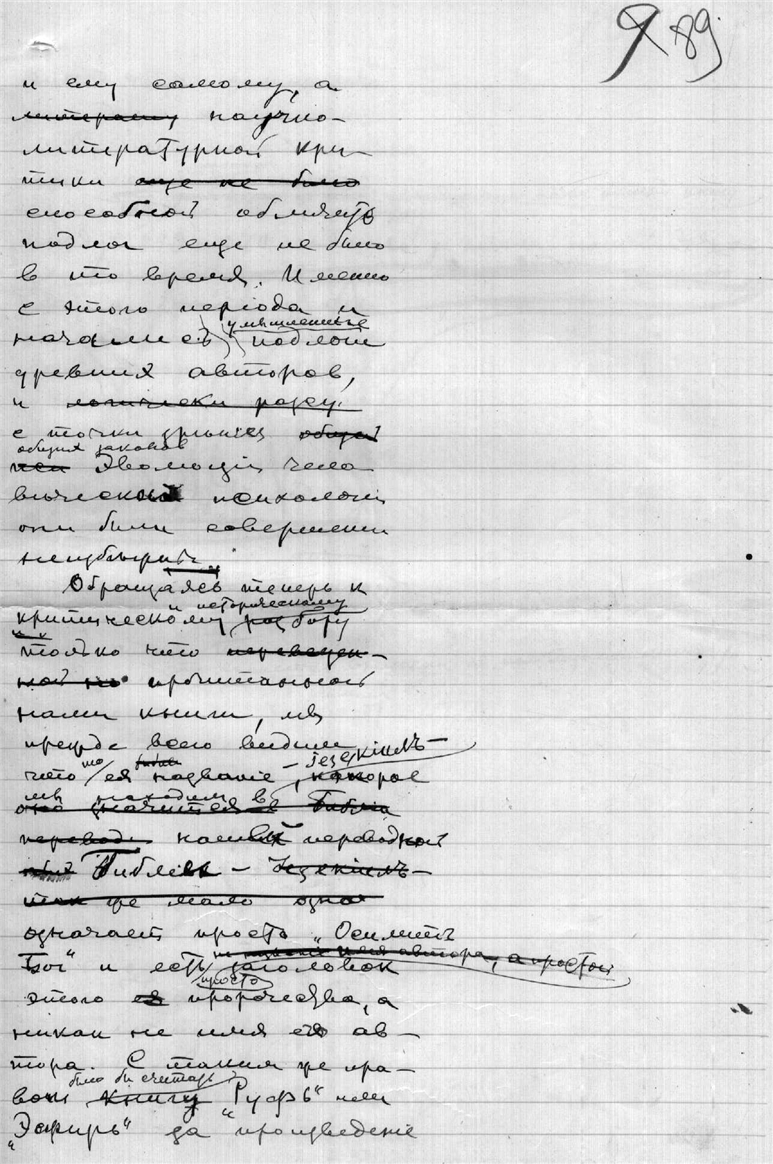 89
и ему самому, а
литерату научно-
литературной кри-
тики еще не было
способной обличить
подлог еще не было
в то время. Именно
с этого періода и
начались умышленные подлоги
древних авторов,
и логически разсу
с точки зрѣнія общей
общих законов
эволюціи чело
вѣческой психологіи
они были совершенно
неизбѣжны.
Обращаясь теперь к
и историческому
критическому разбору
только что переведен-
ной но прочитанной
нами книги, мы
прежде всего видим
что ея названіе – Іезекіилъ –, которое
мы находим в
оно значится в Библіи
переводе нашей переводной
Библіи – Іезекіилъ –
так же мало одно
означает просто „Осилит
не названіе имя автора, а простой
Бог“ и есть заголовок
просто
этого пророчества, а
никак не имя его ав-
тора. С таким же пра-
было бы считать
вом книгу „Руфь“ или
„Эсфирь“ за произведеніе